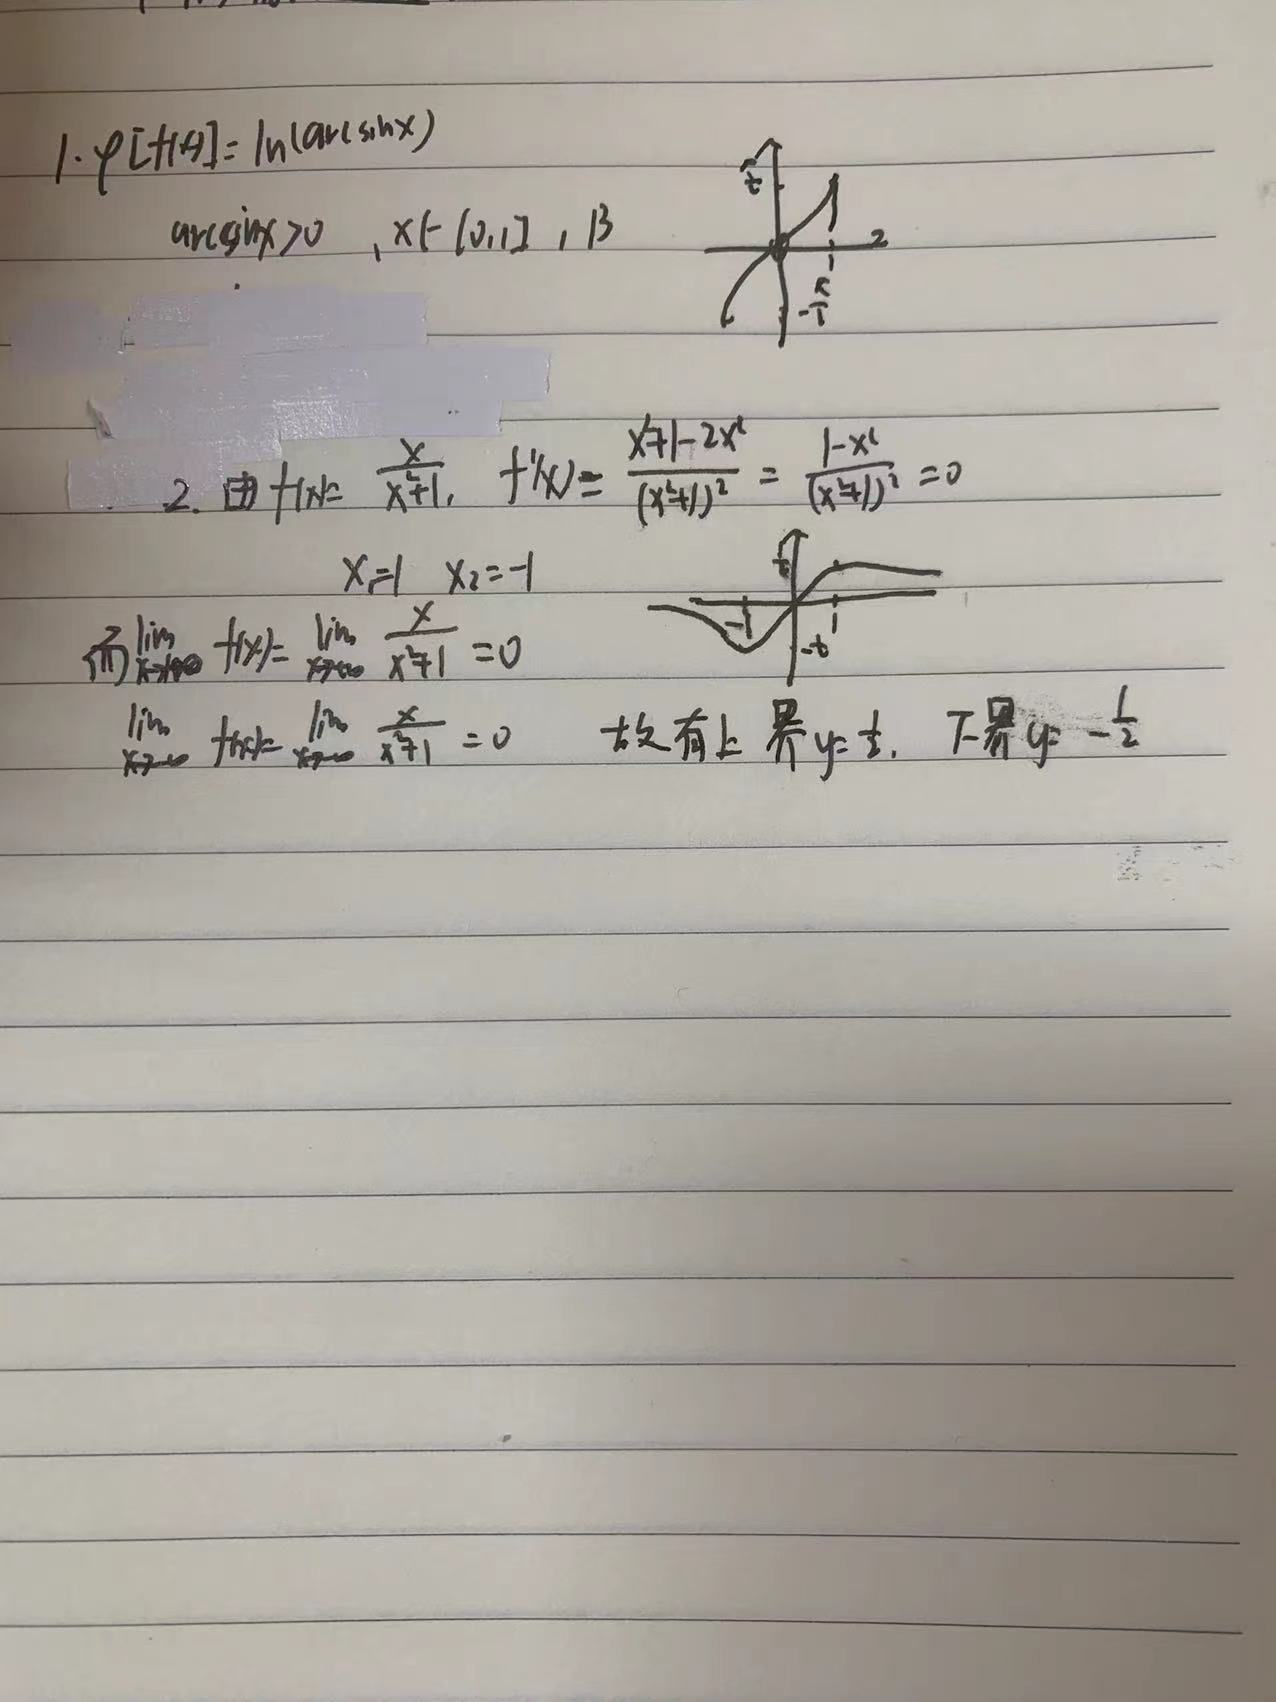 1. φ[f(x)] = ln(arcsinx)
arcsinx>0 , x∈(0,1] , B
2. 由 f(x)= x/(x²+1), f'(x) = (x²+1-2x²)/(x²+1)² = (1-x²)/(x²+1)² = 0
x₁=1 x₂=-1
而 lim x→+∞ f(x)= lim x→+∞ x/(x²+1) =0
lim x→-∞ f(x)= lim x→-∞ x/(x²+1) =0 故有上界y=1/2, 下界y=-1/2